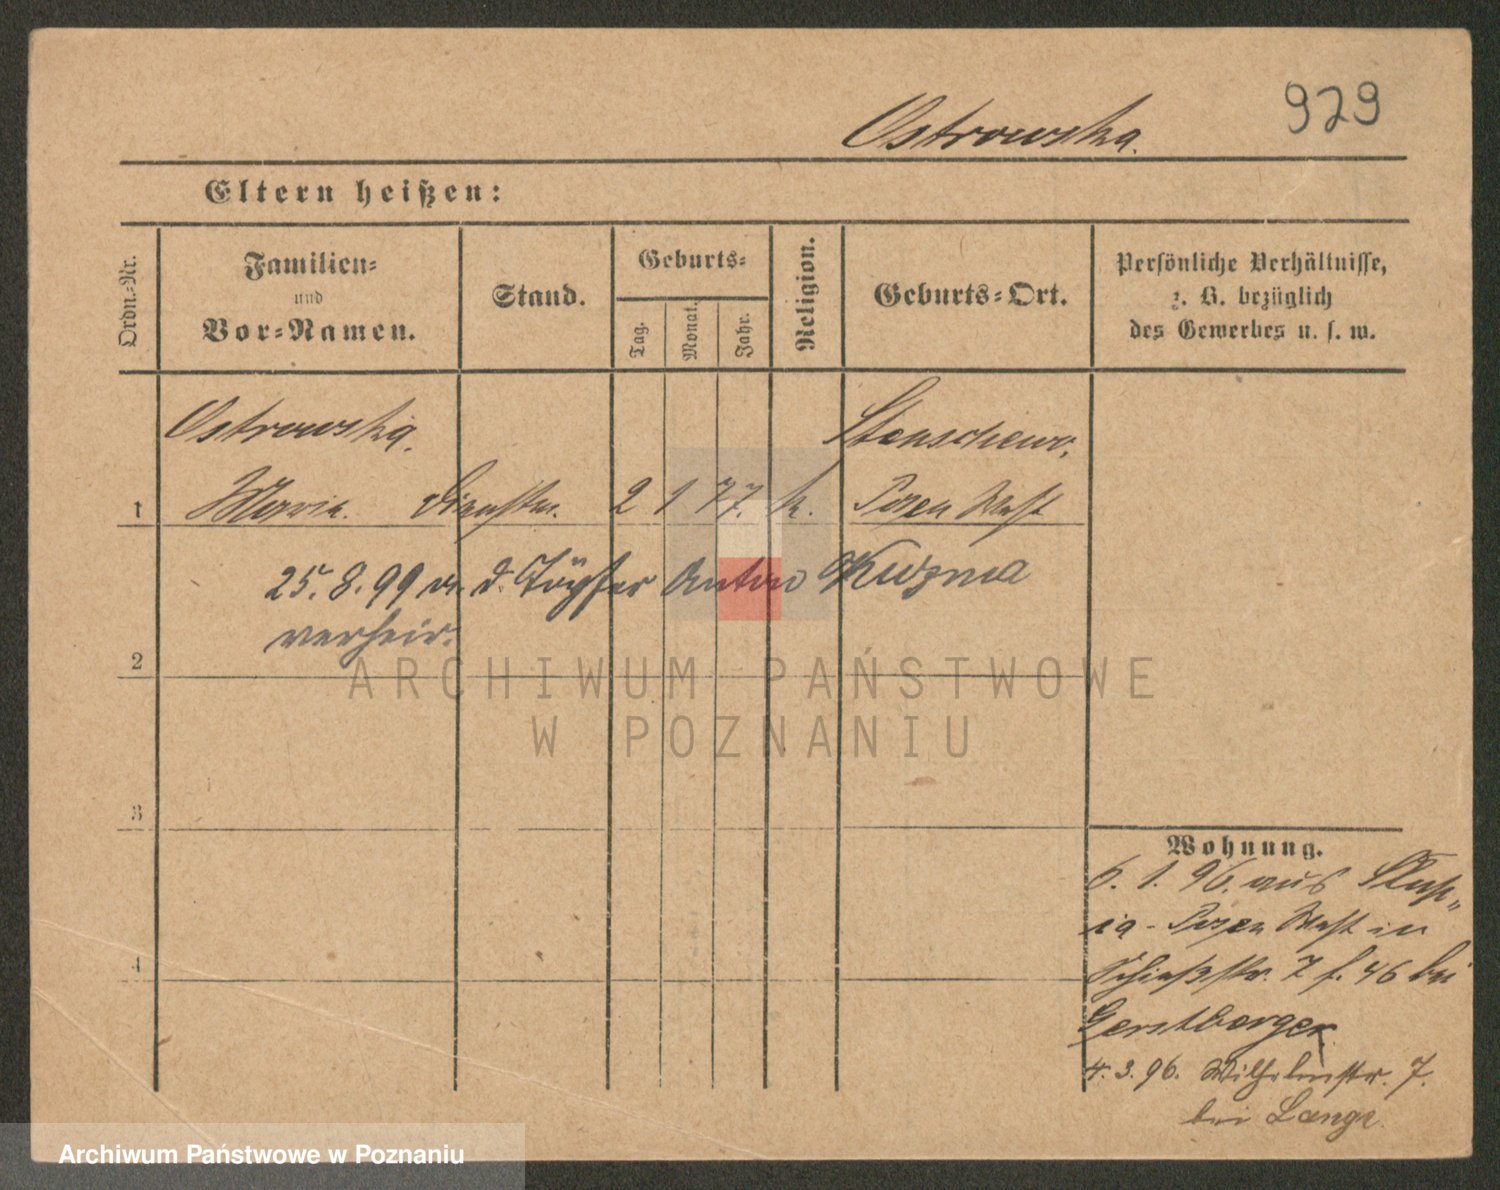 929
Ostrowska.
Eltern heißen:
Ordn.-Nr.
Familien-
und
Vor-Namen.
Stand.
Geburts-
Tag.
Monat.
Jahr.
Religion.
Geburts-Ort.
Persönliche Verhältnisse,
z. B. bezüglich
des Gewerbes u. s. w.
Ostrowska. Stenschewo,
1 Marie. 2 1 77. k. Posen West
25. 8. 99 m. d. Töpfer Anton Kuzma
verheir.
2
ARCHIWUM PAŃSTWOWE
W POZNANIU
3
4
Wohnung.
6. 1. 96. aus
Posen West in
Schießstr. 7 f. 46 bei
Gerstberger
4. 3. 96. Wilhelmstr. 7.
bei Lange
Archiwum Państwowe w Poznaniu